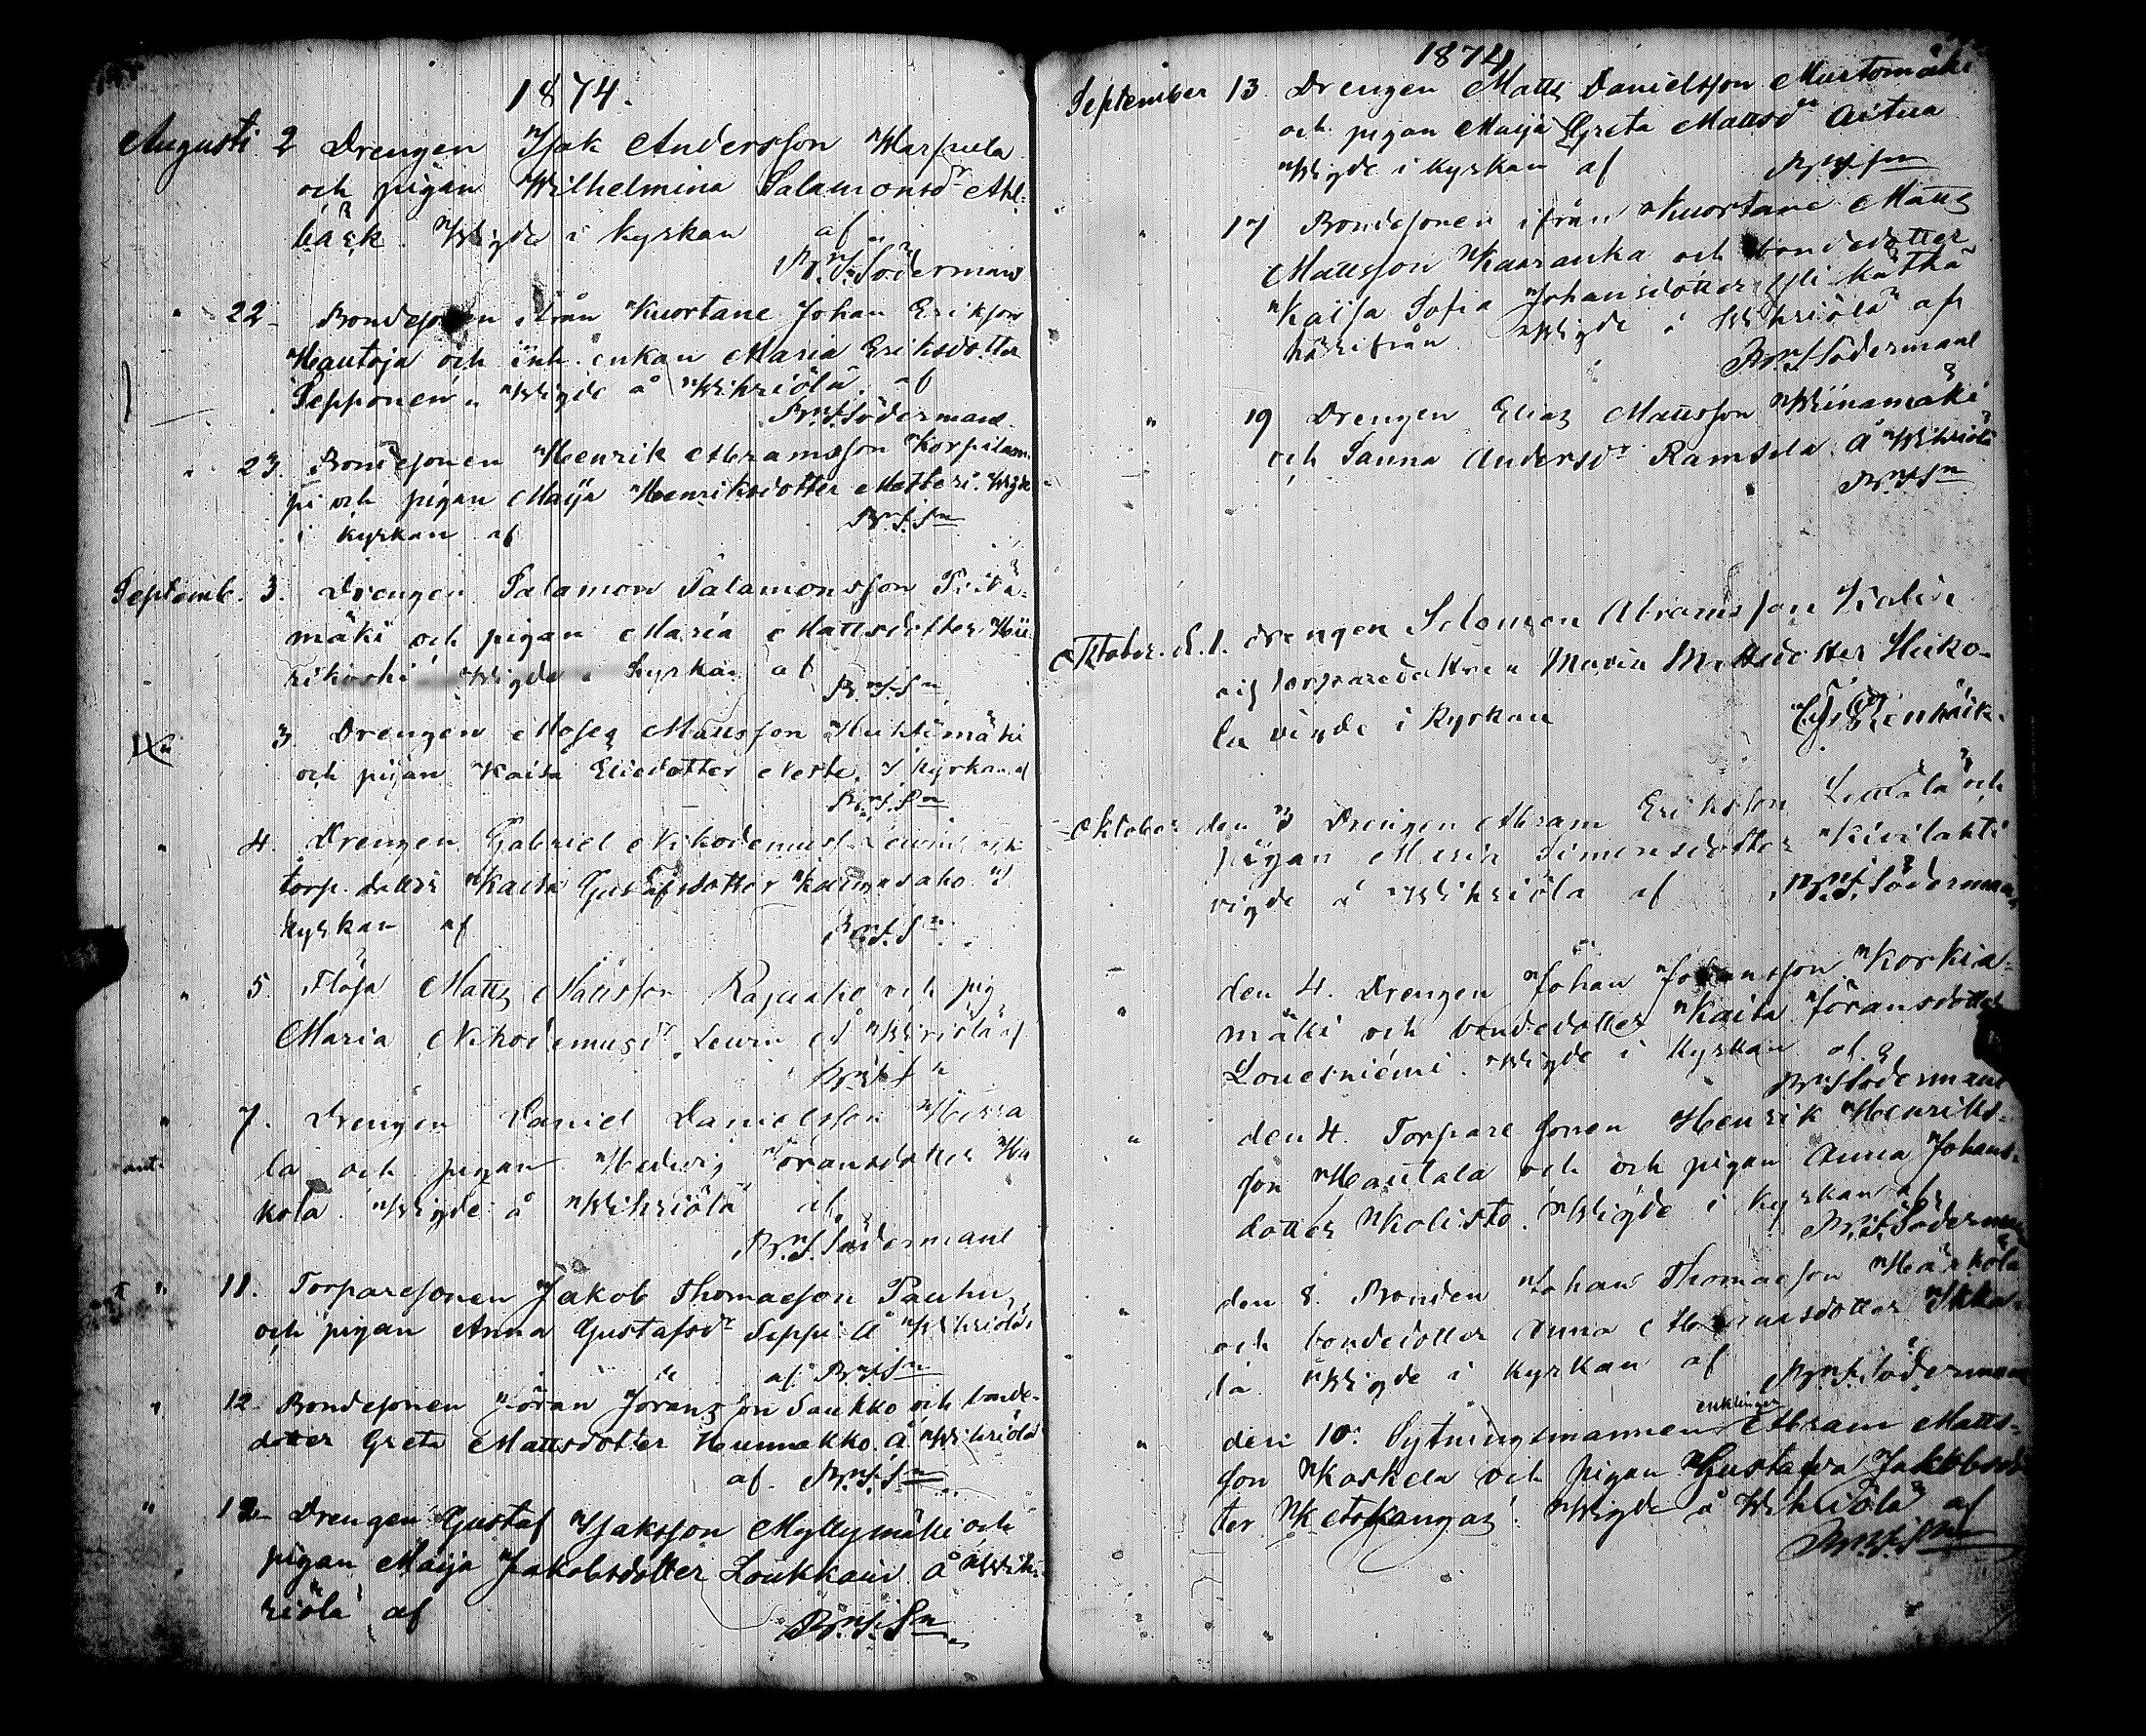 1874.
Augusti 2 Drengen Isak Andersson Harpula
och pigan Wilhelmina Salamonsdr Ahl-
bäck. Wigde i kyrkan af
Söderman
" 22 Bondesonen ifrån Kuortane Johan Eriksson
Hautoja och inh. enkan Maria Eriksdotter
Sepponen. Wigde å Wihriölä. af
Söderman
" 23. Bondesonen Henrik Abramsson Korpilam-
pi och pigan Maija Henriksdotter Metteri. Wigde
i kyrkan af
Septemb. 3. Drengen Salamon Salamonsson
mäki och pigan Maria Mattsdotter Hii-
rikoski Wigde i kyrkan af
3. Drengen Moses Mattsson Huhtimäki
och pigan Kaisa Eliedotter Neste. I kyrkan af
" 4. Drengen Gabriel Nikodemuss. och
torp. dotter Kaisa Gustafsdotter Kaunisaho. I
kyrkan af
" 5. Matts Mattsson och pig.
Maria Nikodemusdr Leurin Å Wihriölä af
" 7. Drengen Daniel Danielsson Herra
la och pigan Hedvig Göransdotter Ha
kola. Wigde å Wihriölä af
Söderman
" 11. Torparesonen Jakob Thomasson Pauhu,
och pigan Anna Gustafsdr Seppi Å Wihriölä
af
" 12 Bondesonen Göran Göransson Saukko och bonde-
dotter Greta Mattsdotter Hunnakko. Å Wihriölä
af
" 12 Drengen Gustaf Isaksson Myllymäki och
pigan Maija Jakobsdotter Loukkain. Å Wih-
riölä af
1874
September 13. Drengen Matts Danielsson Mustomäki
och pigan Maija Greta Mattsdr Aitua
Wigde i kyrkan af
" 17 Bondesonen ifrån Kuortane Matts
Mattsson Kaaranka och bondedotter
Kaisa Sofia Johansdotter Yli Kätkä
härifrån Wigde å Wihriölä af
Söderman
" 19 Drengen Elias Mattsson Wiinamäki
och Sanna Andersdr Ramsela. Å Wihriölä
Oktober. d. 1. drengen Salomon Abramsson Kalin
och torparedottren Maria Mattsdotter Heiko-
la vigde i kyrkan
Oktober den 3 Drengen Abram Eriksson och
pigan Maria Simonsdotter Kivilahti
vigde å Wihriöla af Söderman
" den 4. Drengen Johan Johansson Korkia-
mäki och bondedotter Kaisa Göransdotter
Louesniemi. Wigde i kyrkan af
Söderman
" den 4. Torpare sonen Henrik Henriks-
son Hautala och och pigan Anna Johans-
dotter Kolisto. Wigde i kyrkan af
Söderman
" den 8. Bonden Johan Thomasson Härkölä
och bondedotter Anna
la Wigde i kyrkan af Söderman
enklingen
" den 10. Sytningsmannen Abram Matts-
son Koskela och pigan Gustafva Jakobsdot
ter Ketokangas. Wigde å Wihriölä af